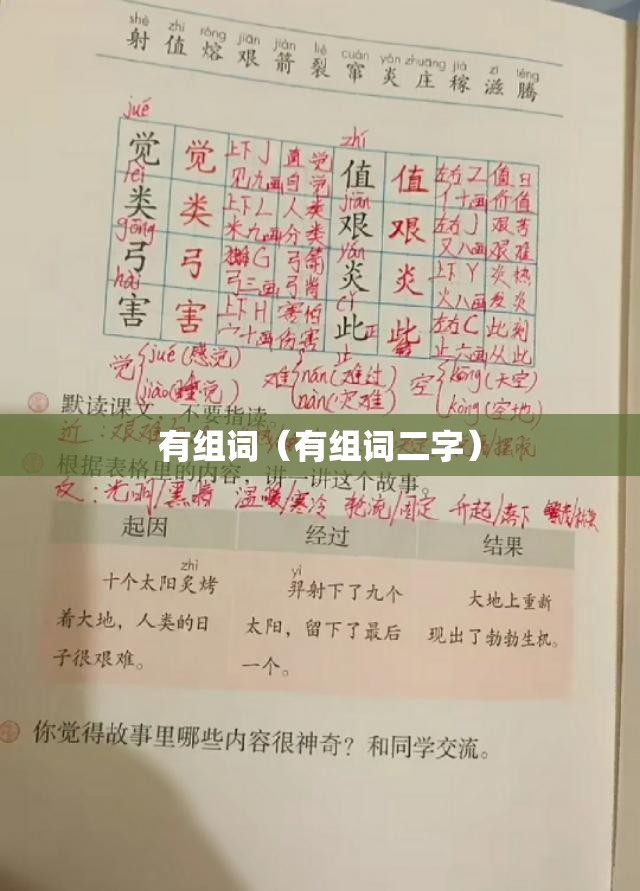 shè zhí róng jiān jiàn liè cuàn yán zhuāng jià zī téng
射 值 熔 艰 箭 裂 窜 炎 庄 稼 滋 腾
jué zhí
觉 觉 上下 J 直觉 值 值 左右 Z 值日
见 九画 自觉 亻 十画 价值
lèi jiān
类 类 上下 L 人类 艰 艰 左右 J 艰苦
米 九画 分类 又 八画 艰难
gōng yán
弓 弓 独体 G 弓箭 炎 炎 上下 Y 炎热
弓 三画 火 八画 发炎
hài cǐ
害 害 上下 H 害怕 此 此 左右 C 此刻
宀 十画 伤害 止 六画 从此
觉 jué(感觉) 难 nán(难过) 空 kōng(天空)
jiào(睡觉) nàn(灾难) kòng(空地)
默读课文,不要指读。
近:艰难
有组词(有组词二字)
根据表格里的内容,讲一讲这个故事。
反:光明/黑暗 温暖/寒冷 轮流/固定 升起/落下
起因 经过 结果
zhì yì
十个太阳炙烤 羿射下了九个 大地上重新
着大地,人类的日 太阳,留下了最后 现出了勃勃生机。
子很艰难。 一个。
你觉得故事里哪些内容很神奇?和同学交流。